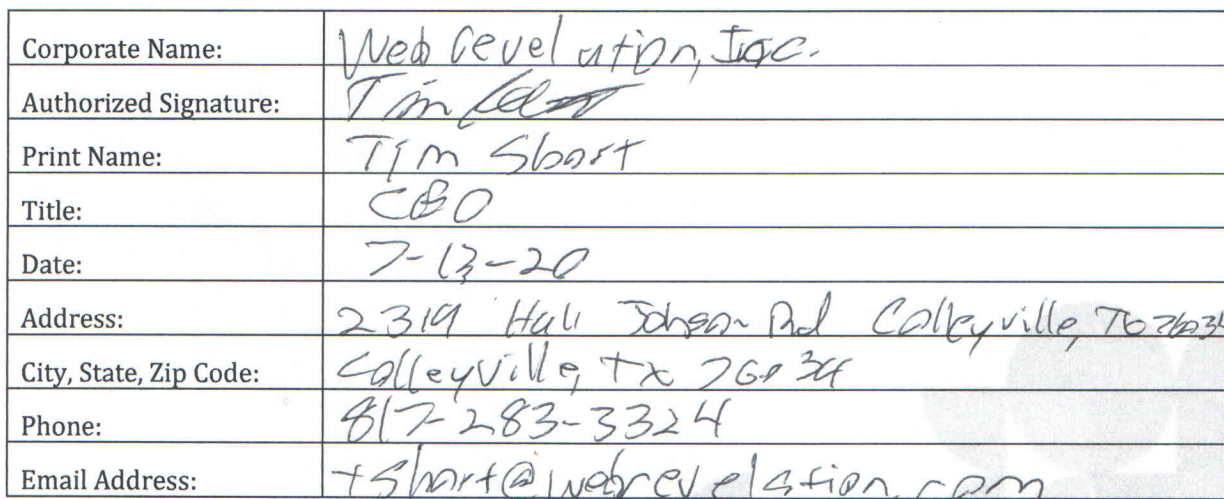 Corporate Name: Web revelation, Inc.
Authorized Signature: Tim
Print Name: Tim Short
Title: CEO
Date: 7-13-20
Address: 2319 Hall Johnson Rd Colleyville, TX 76034
City, State, Zip Code: Colleyville, TX 76034
Phone: 817-283-3324
Email Address: tshort@webrevelation.com